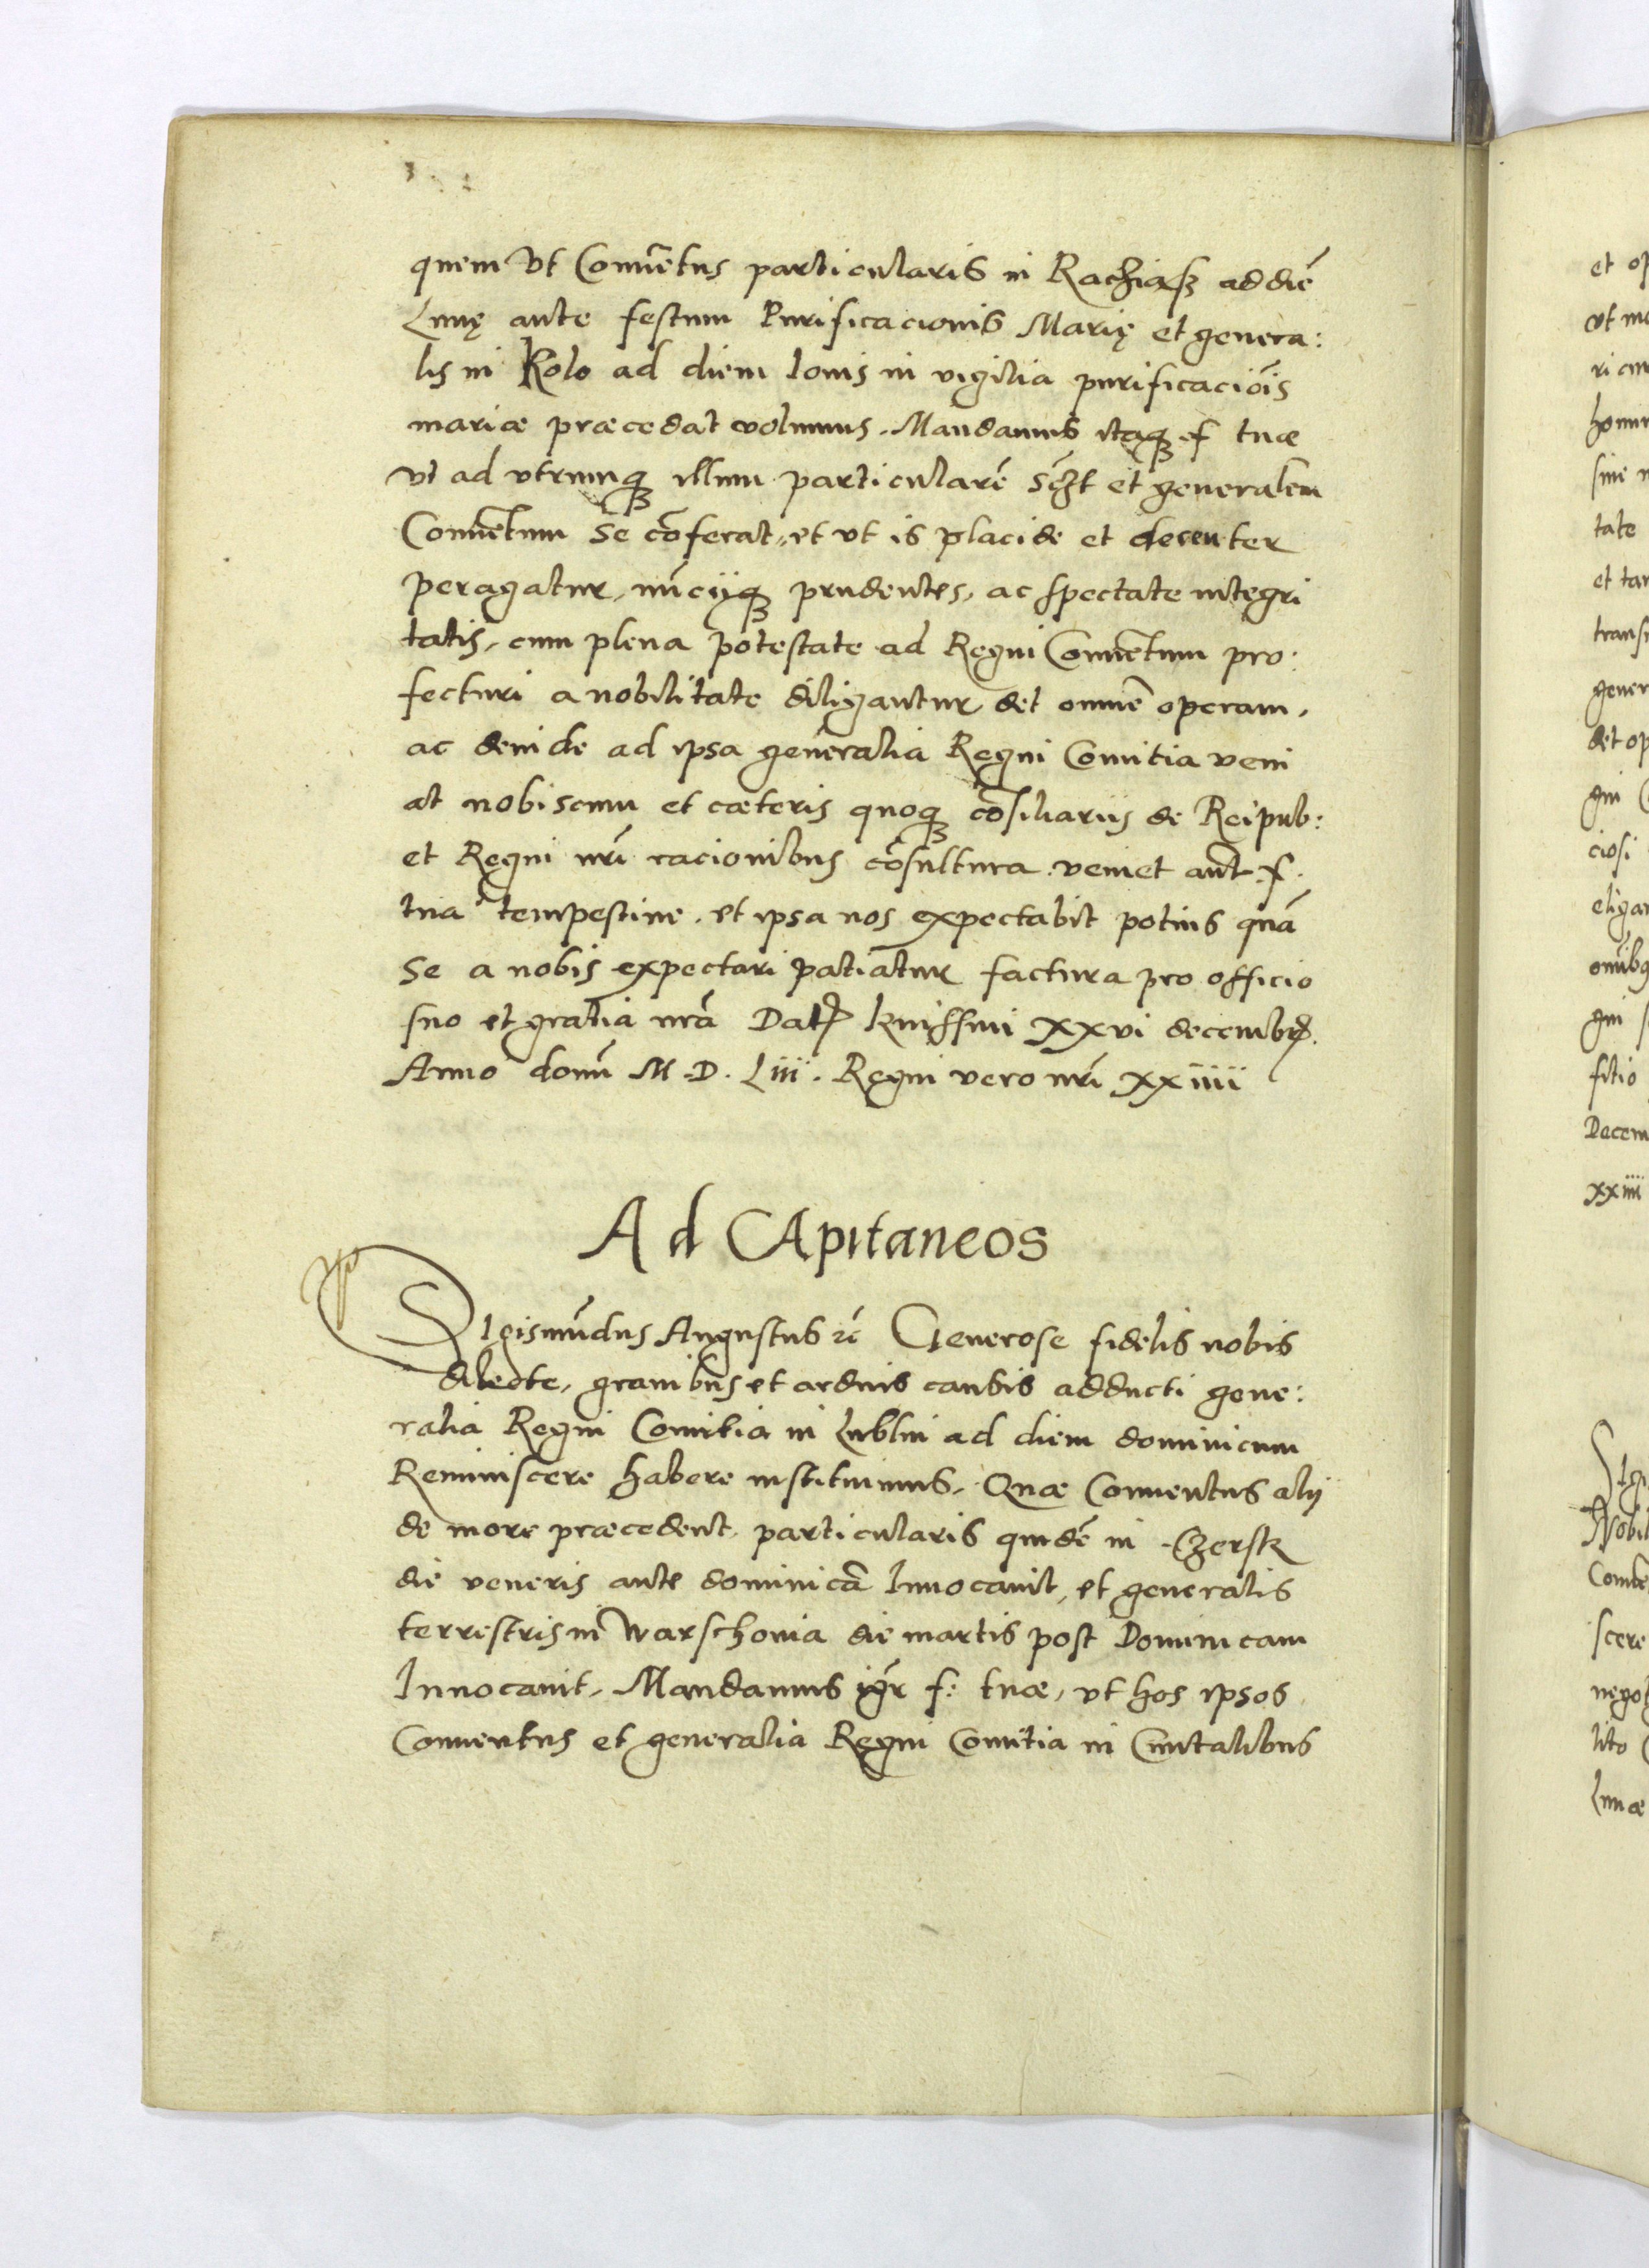 quem Vt Conuētus particularis in Rachiasz ad diē
Lunę ante festum Purificacionis Marię et genera:
lis in Kolo ad diem Iouis in vigilia purificaciōis
mariæ præcedat volumus. Mandamus itaq₃ f tuæ
vt ad vtrumq₃ illum particularē Sczt et generalem
Conuētum Se cōferat, et vt is placide et decenter
peragatur, nūciiq₃ prudentes, ac spectate integri
tatis, cum plena potestate ad Regni Conuētum pro:
fecturi a nobilitate diligantur det omnē operam,
ac deinde ad ipsa generalia Regni Comitia veni
at nobiscum et cæteris quoq₃ cōsiliariis de Reipub:
et Regni nr̄i racionibus cōsultura. veniet aut̄ f.
tua tempestiue. et ipsa nos expectabit potius quā
Se a nobis expectari patiatur factura pro officio
suo et gratia nr̄a Datꝭ knissini xxvi decembrꝭ.
Anno domī M.D.Liii. Regni vero nr̄i xxiiii
Ad CApitaneos
SIgismūdus Augustus ꝛc̄ Generose fidelis nobis
dilecte, grauibus et arduis causis adducti gene:
ralia Regni Comitia in Lublin ad diem dominicum
Reminiscere habere instituimus, Quæ Conuentus alij
de more præcedent, particularis quidē in Czersk
die veneris ante dominicā Inuocauit, et generalis
terrestris in Warschouia die martis post Dominicam
Inuocauit, Mandamus igr̄ f: tuæ, vt hos ipsos
Conuentus et generalia Regni Comitia in Ciuitatibus
et op
vt ma
ri cur
homin
sine n
tate
et tan
trans
gener
det op
gni
ciosi
eligan
omībq
gni
fitio
Decem
xxiiii
Sigi
Nobil
Conue
scere
negot
lito
Lunæ